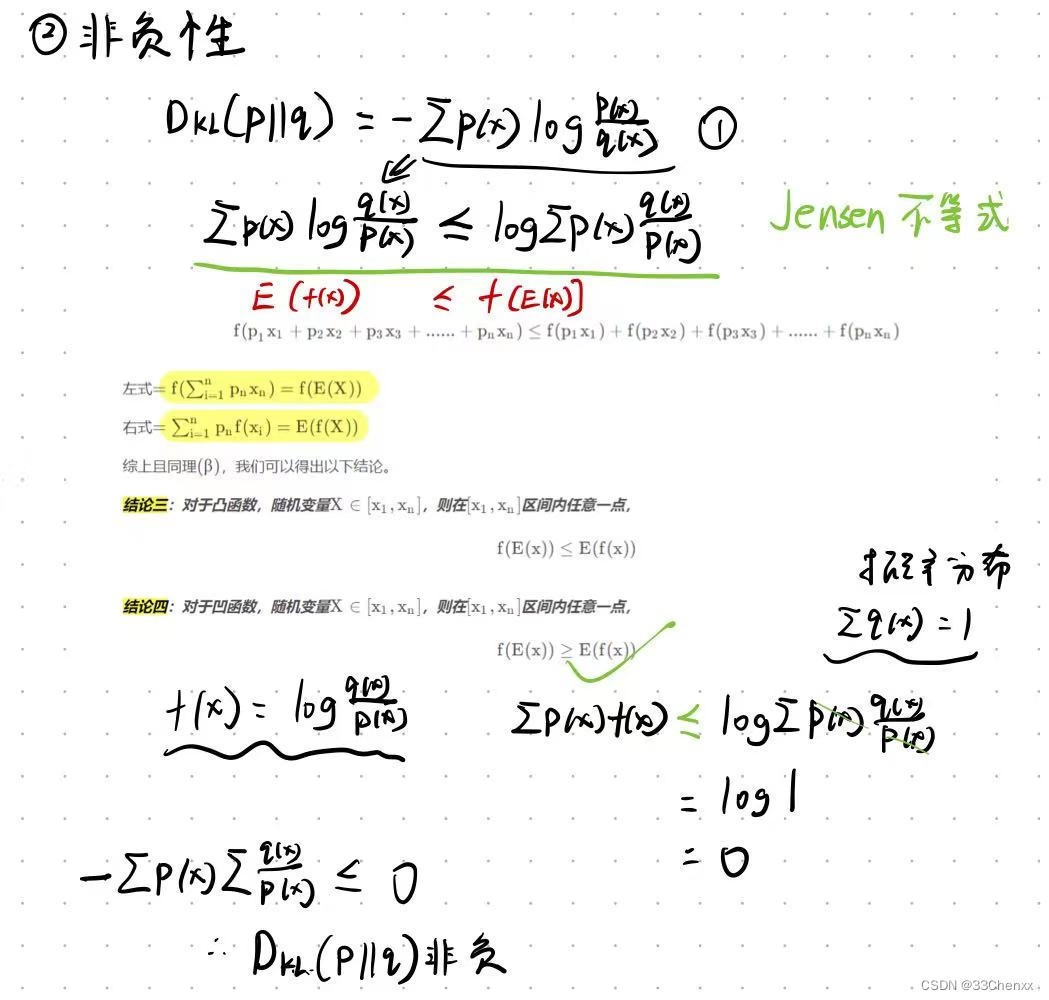 ② 非负性
D_KL(P||q) = -∑p(x) log p(x)/q(x) ①
∑p(x) log q(x)/p(x) ≤ log∑p(x) q(x)/p(x) Jensen 不等式
E(f(x)) ≤ f(E(x)]
f(p₁x₁ + p₂x₂ + p₃x₃ + ...... + pₙxₙ) ≤ f(p₁x₁) + f(p₂x₂) + f(p₃x₃) + ...... + f(pₙxₙ)
左式= f(∑ⁿᵢ₌₁ pₙxₙ) = f(E(X))
右式= ∑ⁿᵢ₌₁ pₙf(xᵢ) = E(f(X))
综上且同理(β)，我们可以得出以下结论。
结论三：对于凸函数，随机变量X ∈ [x₁, xₙ]，则在[x₁, xₙ]区间内任意一点，
f(E(x)) ≤ E(f(x))
概率分布
结论四：对于凹函数，随机变量X ∈ [x₁, xₙ]，则在[x₁, xₙ]区间内任意一点，
∑q(x) = 1
f(E(x)) ≥ E(f(x))
f(x) = log q(x)/p(x)
∑p(x)f(x) ≤ log∑p(x) q(x)/p(x)
= log 1
= 0
-∑p(x)∑ q(x)/p(x) ≤ 0
∴ D_KL(P||q)非负
CSDN @33Chenxx